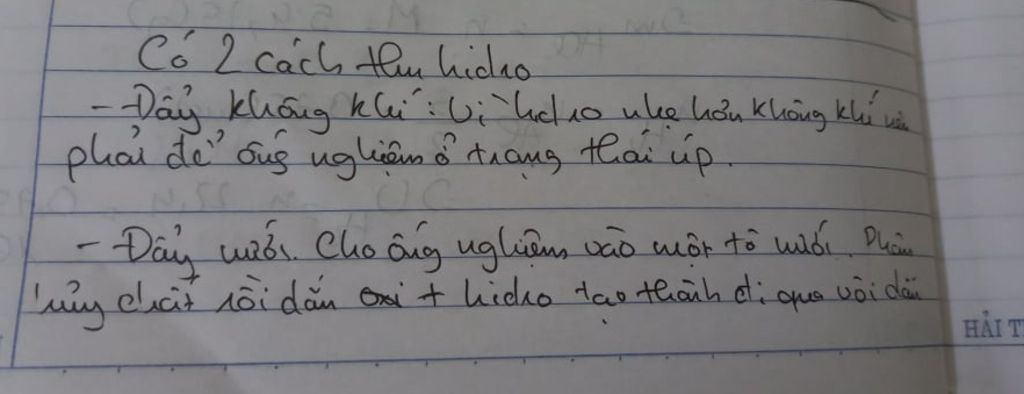 Có 2 cách thu hidro
- Đẩy không khí: Vì hidro nhẹ hơn không khí nên
phải để ống nghiệm ở trạng thái úp.
- Đẩy nước. Cho ống nghiệm vào một tô nước. Phân
hủy chất rồi dẫn oxi + hidro tạo thành đi qua vòi dẫn
HẢI T